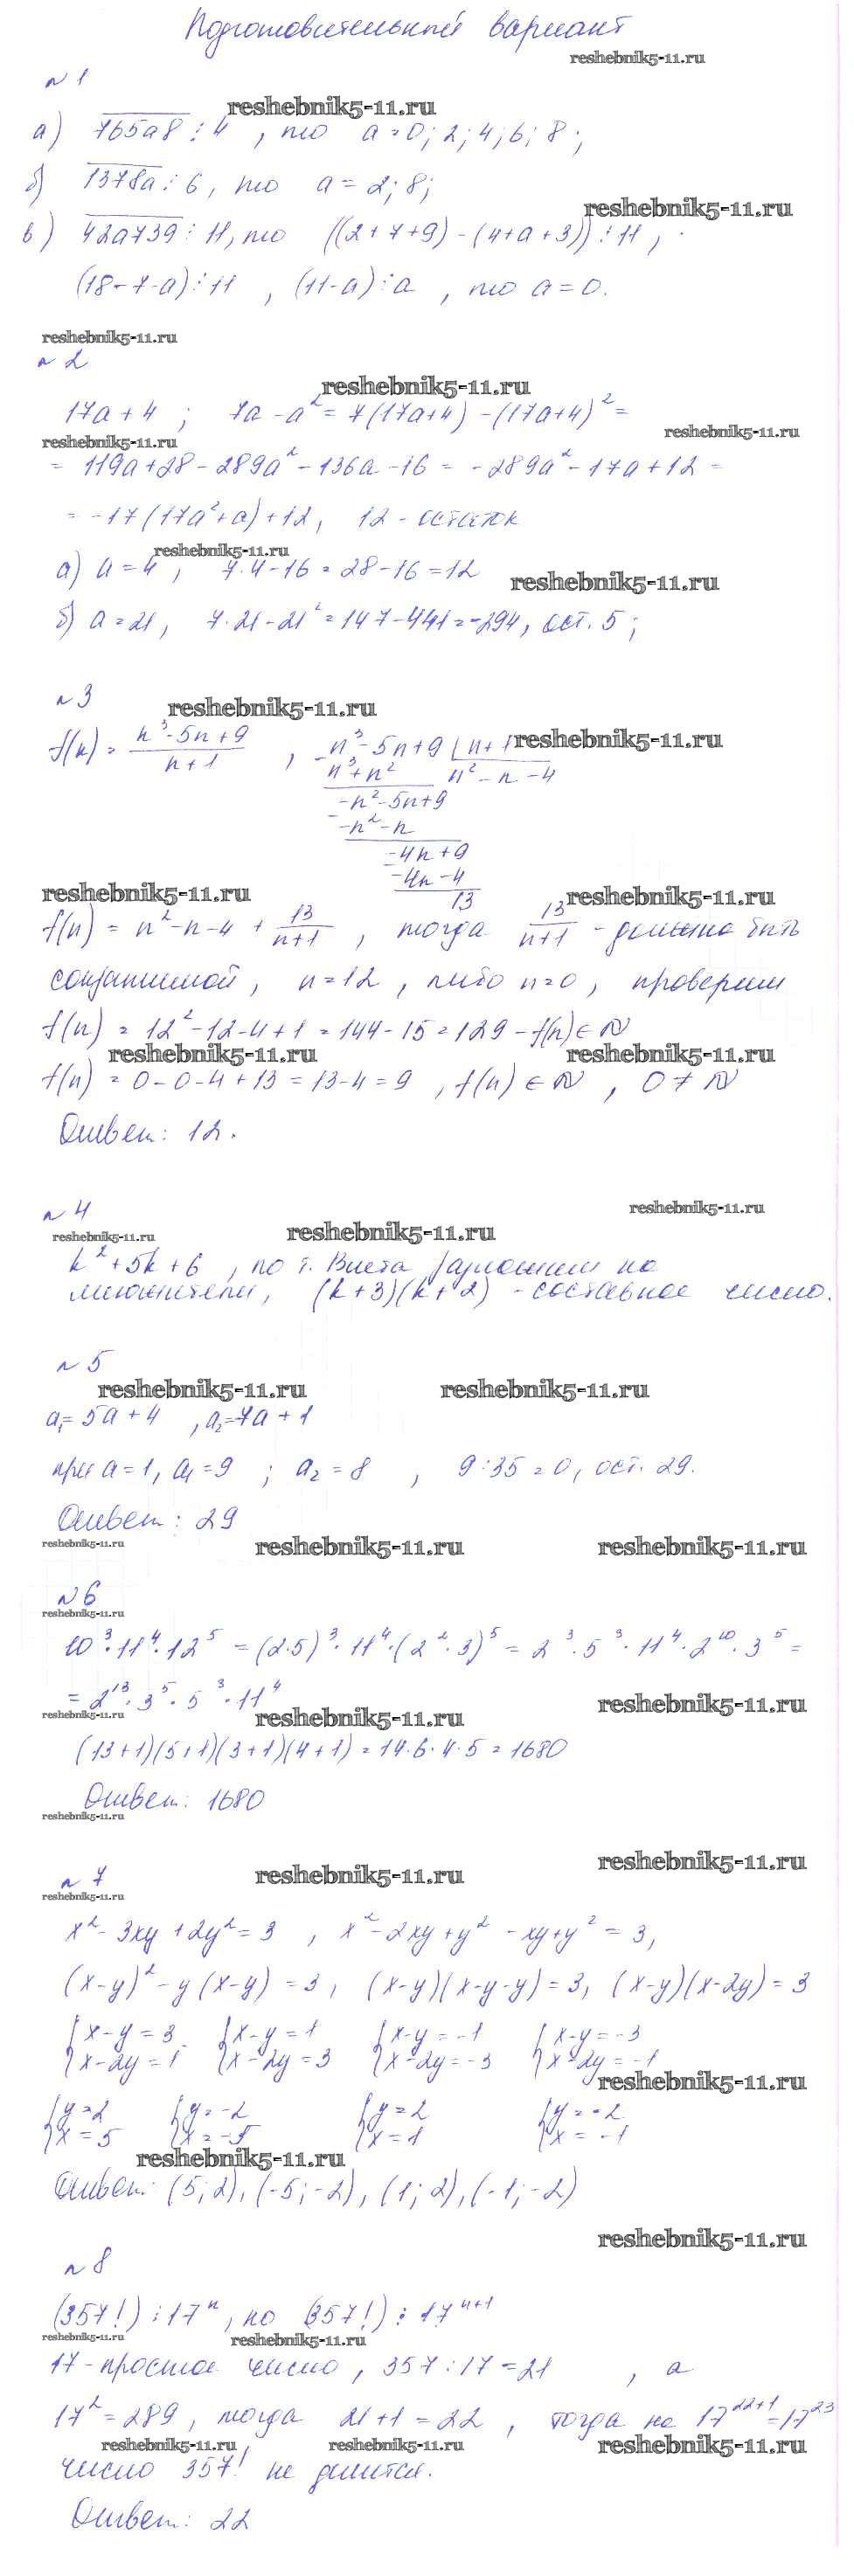 Подготовительный вариант
reshebnik5-11.ru
№ 1
reshebnik5-11.ru
а) 765а8 ⋮ 4 , то а = 0; 2; 4; 6; 8;
б) 1378а ⋮ 6, то а = 2; 8;
reshebnik5-11.ru
в) 42а739 ⋮ 11, то ((2+7+9) - (4+а+3)) ⋮ 11,
(18-7-а) ⋮ 11 , (11-а) ⋮ а , то а = 0.
reshebnik5-11.ru
№ 2
reshebnik5-11.ru
17а + 4 ; 7а - а² = 7(17а+4) - (17а+4)² =
reshebnik5-11.ru reshebnik5-11.ru
= 119а + 28 - 289а² - 136а - 16 = -289а² - 17а + 12 =
= -17(17а² + а) + 12, 12 - остаток
reshebnik5-11.ru
а) а = 4 , 7·4 - 16 = 28 - 16 = 12
reshebnik5-11.ru
б) а = 21, 7·21 - 21² = 147 - 441 = -294, ост. 5;
№ 3
reshebnik5-11.ru
f(n) = n³ - 5n + 9 / n + 1 , n³ - 5n + 9 | n + 1
reshebnik5-11.ru
n³ + n² n² - n - 4
-n² - 5n + 9
-n² - n
-4n + 9
-4n - 4
13
reshebnik5-11.ru reshebnik5-11.ru
f(n) = n² - n - 4 + 13/n+1 , тогда 13/n+1 - должно быть
сократимой, n = 12 , либо n = 0 , проверим
f(n) = 12² - 12 - 4 + 1 = 144 - 15 = 129 - f(n) ∈ N
reshebnik5-11.ru reshebnik5-11.ru
f(n) = 0 - 0 - 4 + 13 = 13 - 4 = 9 , f(n) ∈ N , 0 ≠ N
Ответ: 12.
№ 4
reshebnik5-11.ru
reshebnik5-11.ru reshebnik5-11.ru
k² + 5k + 6 , по т. Виета разложим на
множители, (k + 3)(k + 2) - составное число.
№ 5
reshebnik5-11.ru reshebnik5-11.ru
а₁ = 5а + 4 , а₂ = 7а + 1
при а = 1, а₁ = 9 ; а₂ = 8 , 9 : 35 = 0, ост. 29.
Ответ: 29
reshebnik5-11.ru reshebnik5-11.ru reshebnik5-11.ru
№ 6
reshebnik5-11.ru
10³ · 11⁴ · 12⁵ = (2·5)³ · 11⁴ · (2² · 3)⁵ = 2³ · 5³ · 11⁴ · 2¹⁰ · 3⁵ =
= 2¹³ · 3⁵ · 5³ · 11⁴
reshebnik5-11.ru reshebnik5-11.ru reshebnik5-11.ru
(13+1)(5+1)(3+1)(4+1) = 14·6·4·5 = 1680
Ответ: 1680
reshebnik5-11.ru
№ 7
reshebnik5-11.ru reshebnik5-11.ru
reshebnik5-11.ru
x² - 3xy + 2y² = 3 , x² - 2xy + y² - xy + y² = 3,
(x-y)² - y(x-y) = 3, (x-y)(x-y-y) = 3, (x-y)(x-2y) = 3
{x-y = 3 {x-y = 1 {x-y = -1 {x-y = -3
{x-2y = 1 {x-2y = 3 {x-2y = -3 {x-2y = -1
reshebnik5-11.ru
{y = 2 {y = -2 {y = 2 {y = -2
{x = 5 {x = -5 {x = 1 {x = -1
reshebnik5-11.ru
Ответ: (5; 2), (-5; -2), (1; 2), (-1; -2)
reshebnik5-11.ru
№ 8
(357!) ⋮ 17ⁿ, но (357!) ⋮ 17ⁿ⁺¹
reshebnik5-11.ru reshebnik5-11.ru
17 - простое число, 357 : 17 = 21 , а
17² = 289, тогда 21 + 1 = 22 , тогда на 17²²⁺¹ = 17²³
reshebnik5-11.ru reshebnik5-11.ru reshebnik5-11.ru
число 357! не делится.
Ответ: 22